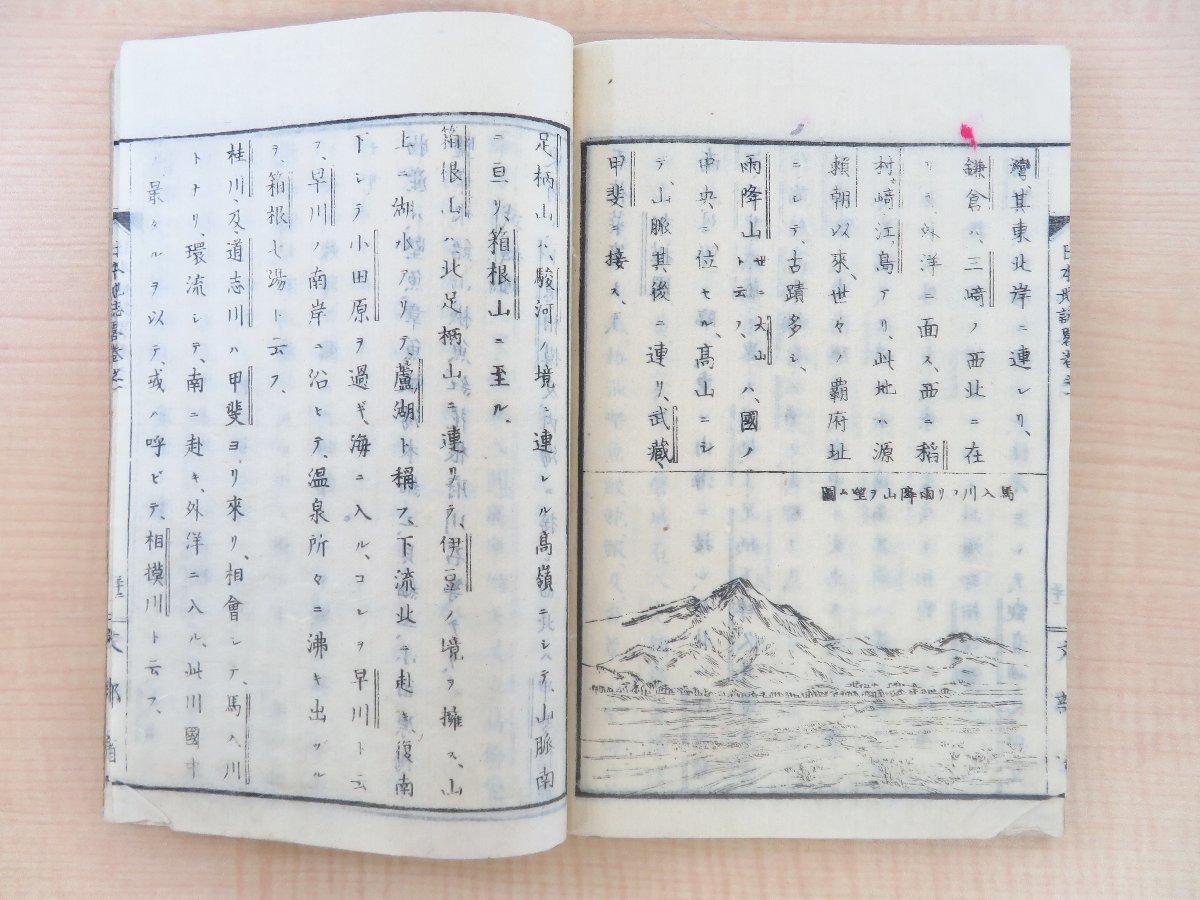 灣、其東北岸ニ連レリ、
鎌倉ハ、三﨑ノ西北ニ在
リテ、外洋ニ面ス、西ニ稲
村﨑、江ノ島アリ、此地ハ源
頼朝以來、世々ノ覇府址
ニシテ、古蹟多シ、
雨降山世ニ大山ト云フ、ハ、國ノ
中央ニ位セル、高山ニシ
テ、山脈其後ニ連リ、武藏、
甲斐ニ接ス、
馬入川ヨリ雨降山ヲ望ム圖
足柄山ハ、駿河ノ境ニ連レル高嶺ニシテ、山脈南
ニ亘リ、箱根山ニ至ル、
箱根山ハ、北足柄山ニ連リテ、伊豆ノ境ヲ擁ス、山
上ニ湖水アリテ、蘆湖ト稱フ、下流北ニ赴キ、復南
下シテ小田原ヲ過ギ、海ニ入ル、コレヲ早川ト云
フ、早川ノ南岸ニ沿ヒテ、温泉所々ニ沸キ出ヅル
ヲ、箱根七湯ト云フ、
桂川、及道志川ハ甲斐ヨリ來リ、相會シテ、馬入川
トナリ、環流シテ、南ニ赴キ、外洋ニ入ル、此川國中
ノ最タルヲ以テ、或ハ呼ビテ、相摸川ト云フ、
日本地誌畧卷之一
文部省